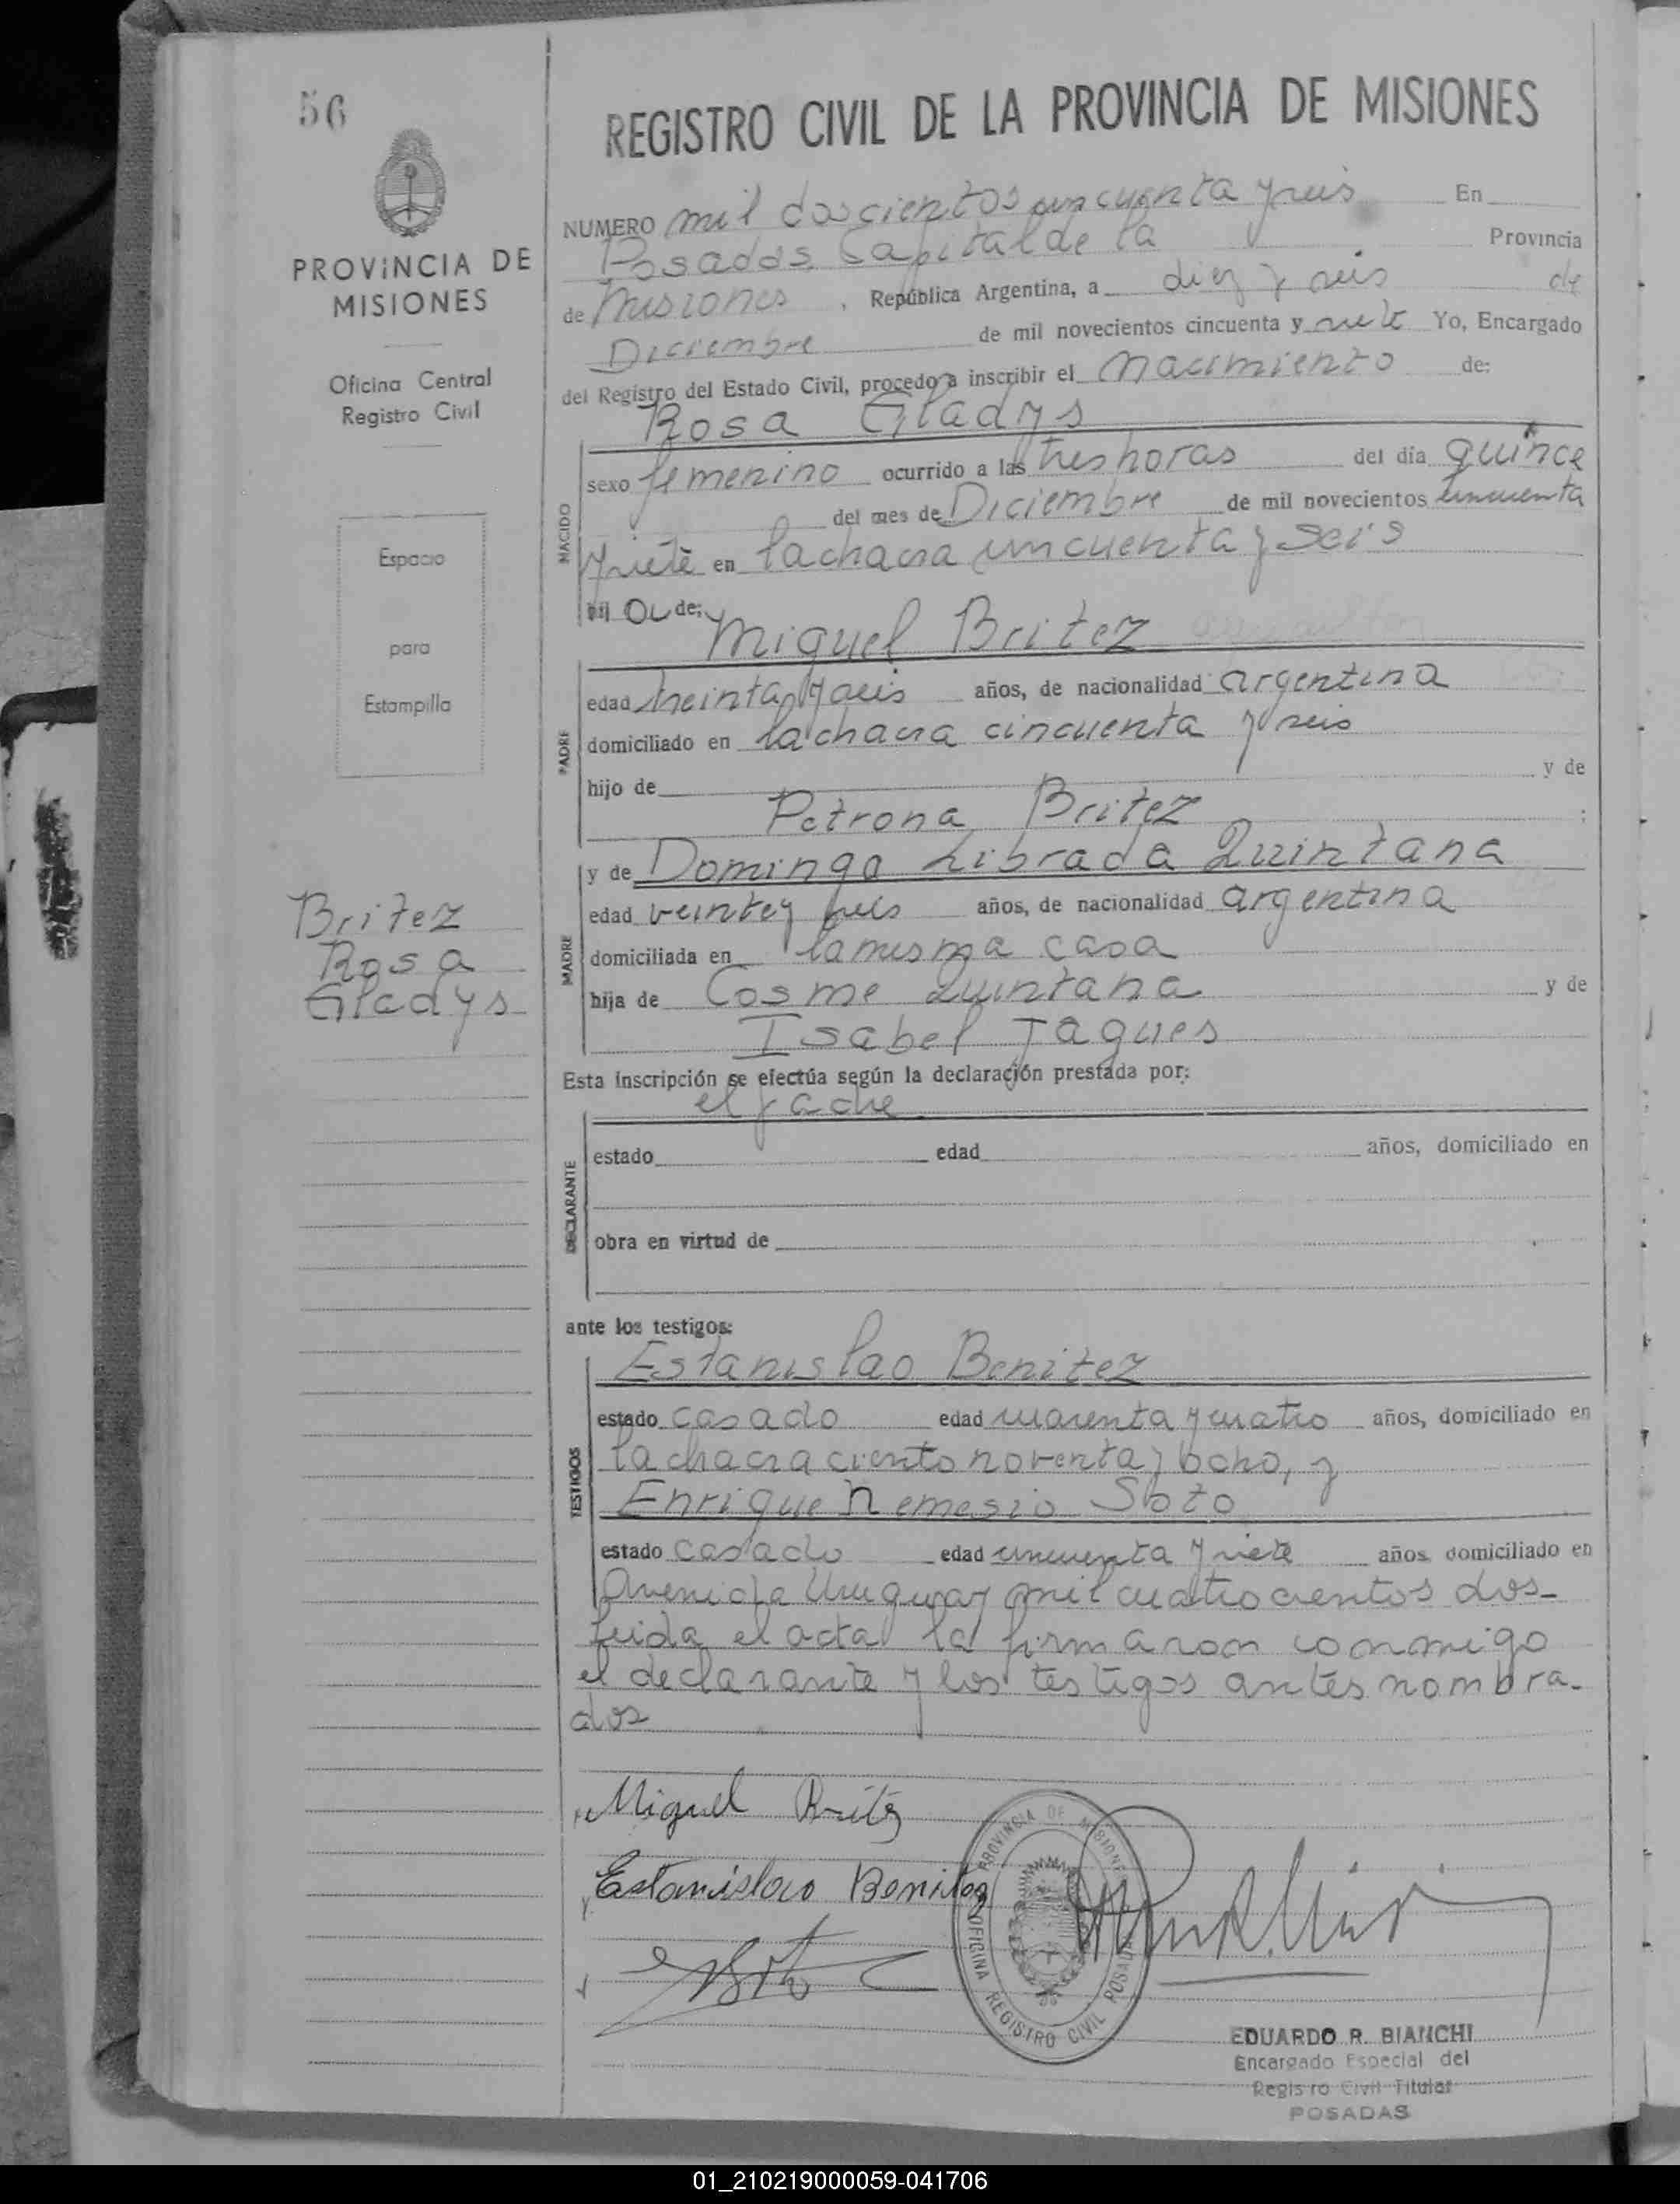 56
PROVINCIA DE
MISIONES
Oficina Central
Registro Civil
Espacio
para
Estampilla
Britez
Rosa
Gladys
REGISTRO CIVIL DE LA PROVINCIA DE MISIONES
NUMERO mil doscientos cincuenta y seis En
Posadas, Capital de la Provincia
de Misiones, República Argentina, a diez y seis de
Diciembre de mil novecientos cincuenta y siete Yo, Encargado
del Registro del Estado Civil, procedo a inscribir el nacimiento de:
Rosa Gladys
NACIDO
sexo femenino ocurrido a las tres horas del día quince
del mes de Diciembre de mil novecientos cincuenta
y siete en la chacra cincuenta y seis
hij a de:
Miguel Britez
PADRE
edad treinta y seis años, de nacionalidad argentina
domiciliado en la chacra cincuenta y seis
hijo de y de
Petrona Britez ;
MADRE
y de Dominga Librada Quintana
edad veinte y seis años, de nacionalidad argentina
domiciliada en la misma casa
hija de Cosme Quintana y de
Isabel Jaques
Esta inscripción se efectúa según la declaración prestada por:
el padre
DECLARANTE
estado edad años, domiciliado en
obra en virtud de
ante los testigos:
Estanislao Benitez
TESTIGOS
estado casado edad cuarenta y cuatro años, domiciliado en
la chacra ciento noventa y ocho, y
Enrique Nemesio Soto
estado casado edad cincuenta y siete años domiciliado en
Avenida Uruguay mil cuatrocientos dos-
leida el acta la firmaron conmigo
el declarante y los testigos antes nombra-
dos
Miguel Britez
Estanislao Benitez
PROVINCIA DE MISIONES
OFICINA REGISTRO CIVIL POSADAS
EDUARDO R. BIANCHI
Encargado Especial del
Registro Civil Titular
POSADAS
01_210219000059-041706